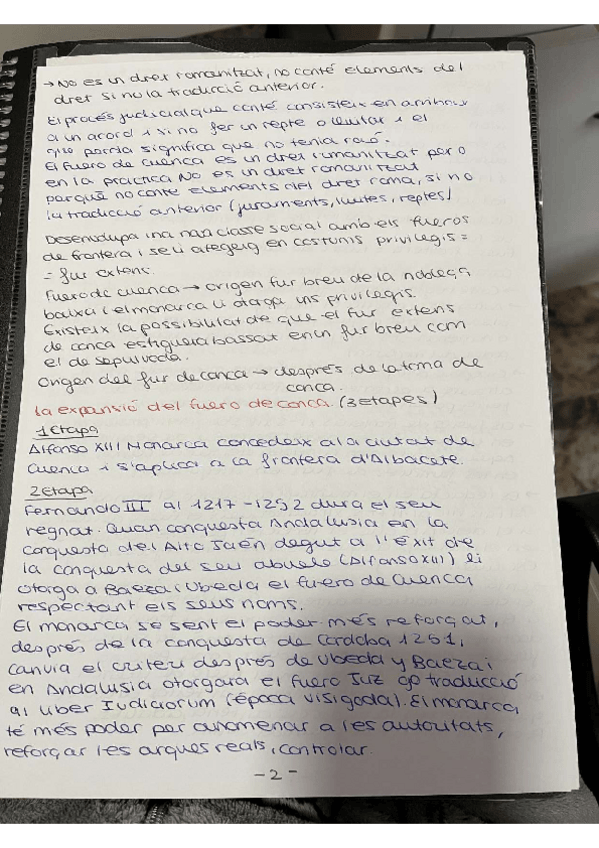 → No es un dret romanitzat, no conté elements del
dret si no la tradicció anterior.
El procés judicial que conté consisteix en arribar
a un acord i si no fer un repte o lluitar i el
que pardia significa que no tenia raó.
El fuero de cuenca es un dret rumanitzat pero
en la practica No es un dret romanitzat
parquè no conte elements del dret romà, si no
la tradicció anterior (juraments, lluites, reptes)
Desenvolupa una nova classe social amb els fueros
de frontera i se li afegeig en costums privilegis =
= fur extens.
Fuero de cuenca → origen fur breu de la noblesa
baixa i el monarca li otorga uns privilegis.
Existeix la possibilitat de que el fur extens
de conca estiguera bassat en un fur breu com
el de sepulveda.
Origen del fur de conca → després de la toma de
conca.
La expansió del fuero de conca. (3 etapes)
1 Etapa
Alfonso XIII Monarca concedeix a la ciutat de
Cuenca i s'aplica a la frontera d'Albacete.
2 Etapa
Fernando III al 1217-1252 dura el seu
regnat. Quan conquesta Andalusia en la
conquesta del Alto Jaén degut a l'éxit de
la conquesta del seu abuelo (Alfonso XIII) li
otorga a Baeza i Ubeda el fuero de Cuenca
respectant els seus noms.
El monarca se sent el poder més reforçat,
després de la conquesta de Cordoba 1251,
canvia el criteri després de Ubeda y Baeza i
en Andalusia otorgara el fuero Juzgo traducció
al Liber Iudiciorum (época visigoda). El monarca
té més poder per anomenar a les autoritats,
reforçar les arques reals, controlar.
- 2 -